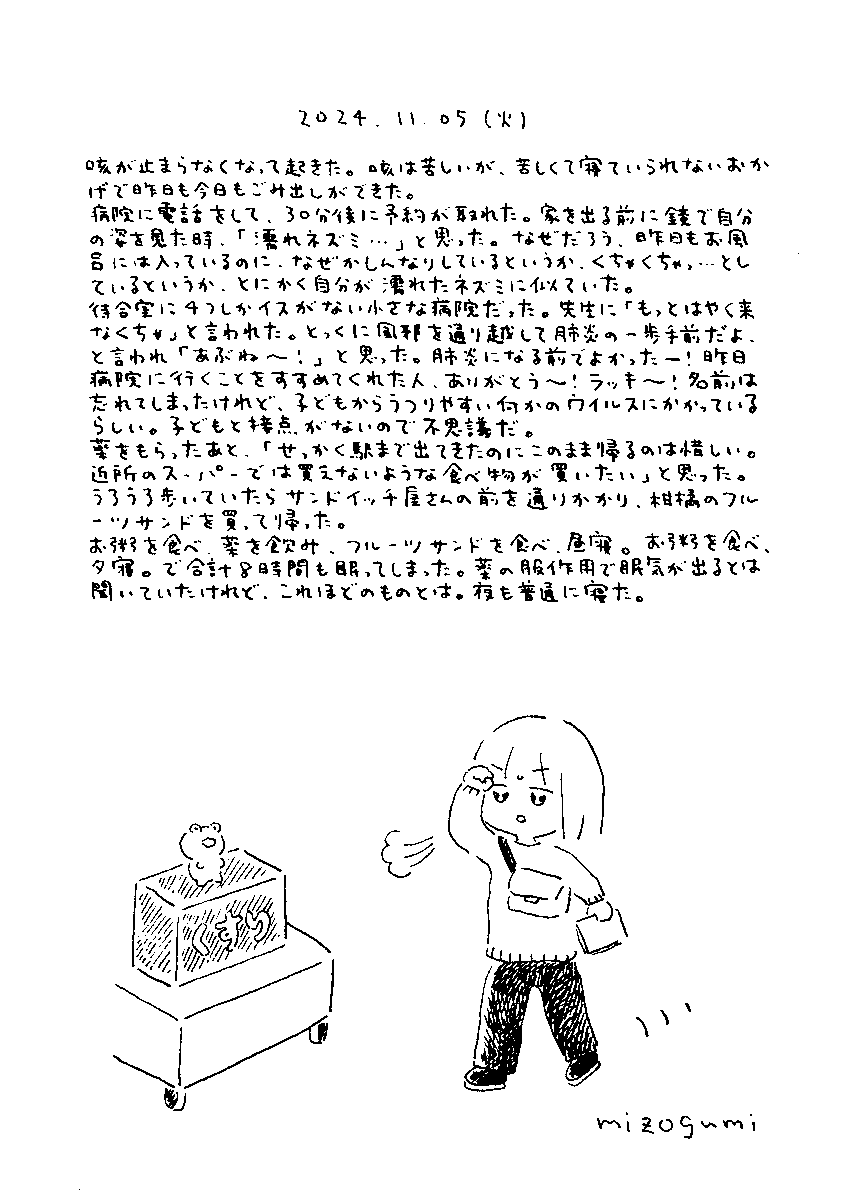 2024.11.05(火)
咳が止まらなくなって起きた。咳は苦しいが、苦しくて寝ていられないおか
げで昨日も今日もごみ出しができた。
病院に電話をして、30分後に予約が取れた。家を出る前に鏡で自分
の姿を見た時、「濡れネズミ…」と思った。なぜだろう、昨日もお風
呂には入っているのに、なぜかしんなりしているというか、くちゃくちゃっ…とし
ているというか、とにかく自分が濡れたネズミに似ていた。
待合室に4つしかイスがない小さな病院だった。先生に「もっとはやく来
なくちゃ」と言われた。とっくに風邪を通り越して肺炎の一歩手前だよ、
と言われ「あぶね〜!」と思った。肺炎になる前でよかったー!昨日
病院に行くことをすすめてくれた人、ありがとう〜!ラッキ〜!名前は
忘れてしまったけれど、子どもからうつりやすい何かのウイルスにかかっている
らしい。子どもと接点がないので不思議だ。
薬をもらったあと、「せっかく駅まで出てきたのにこのまま帰るのは惜しい。
近所のスーパーでは買えないような食べ物が買いたい」と思った。
うろうろ歩いていたらサンドイッチ屋さんの前を通りかかり、柑橘のフル
ーツサンドを買って帰った。
お粥を食べ、薬を飲み、フルーツサンドを食べ、昼寝。お粥を食べ、
夕寝。で合計8時間も眠ってしまった。薬の服作用で眠気が出るとは
聞いていたけれど、これほどのものとは。夜も普通に寝た。
くすり
mizogumi